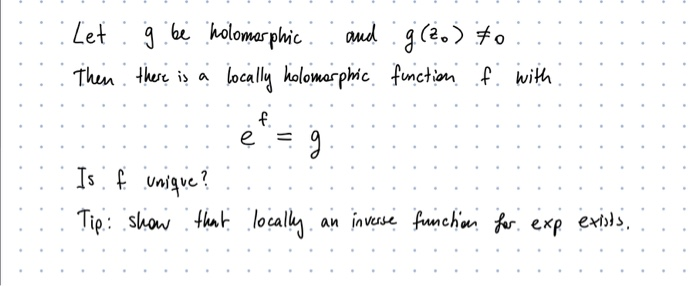 Let g be holomorphic and g(z₀) ≠ 0
Then there is a locally holomorphic function f with
e^f = g
Is f unique?
Tip: show that locally an inverse function for exp exists.